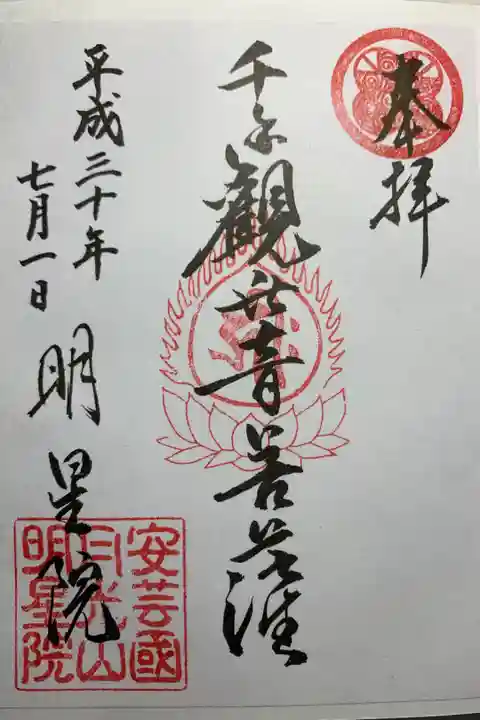 奉拝
千手観世音菩薩
平成三十年
七月一日
明星院
安芸國
日光山
明星院